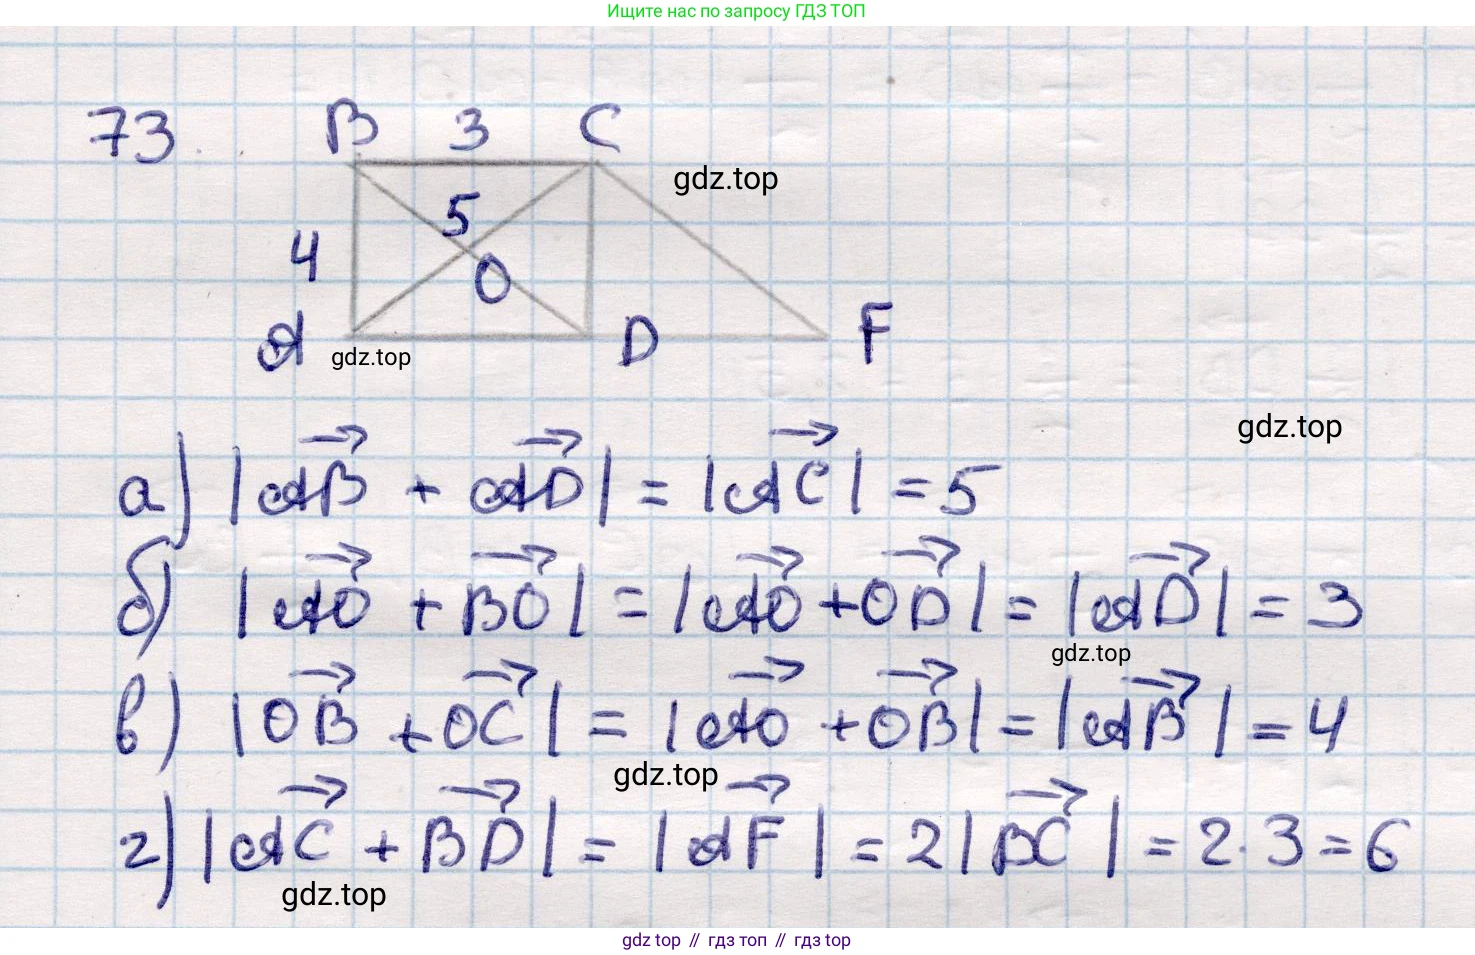 Ищите нас по запросу ГДЗ ТОП
73. B 3 C
gdz.top
5
4 O
A D F
gdz.top
gdz.top
а) |AB + AD| = |AC| = 5
б) |AO + BO| = |AO + OD| = |AD| = 3
gdz.top
в) |OB + OC| = |AO + OB| = |AB| = 4
gdz.top
г) |AC + BD| = |AF| = 2|BC| = 2·3=6
gdz.top
gdz top // гдз топ // гдз top